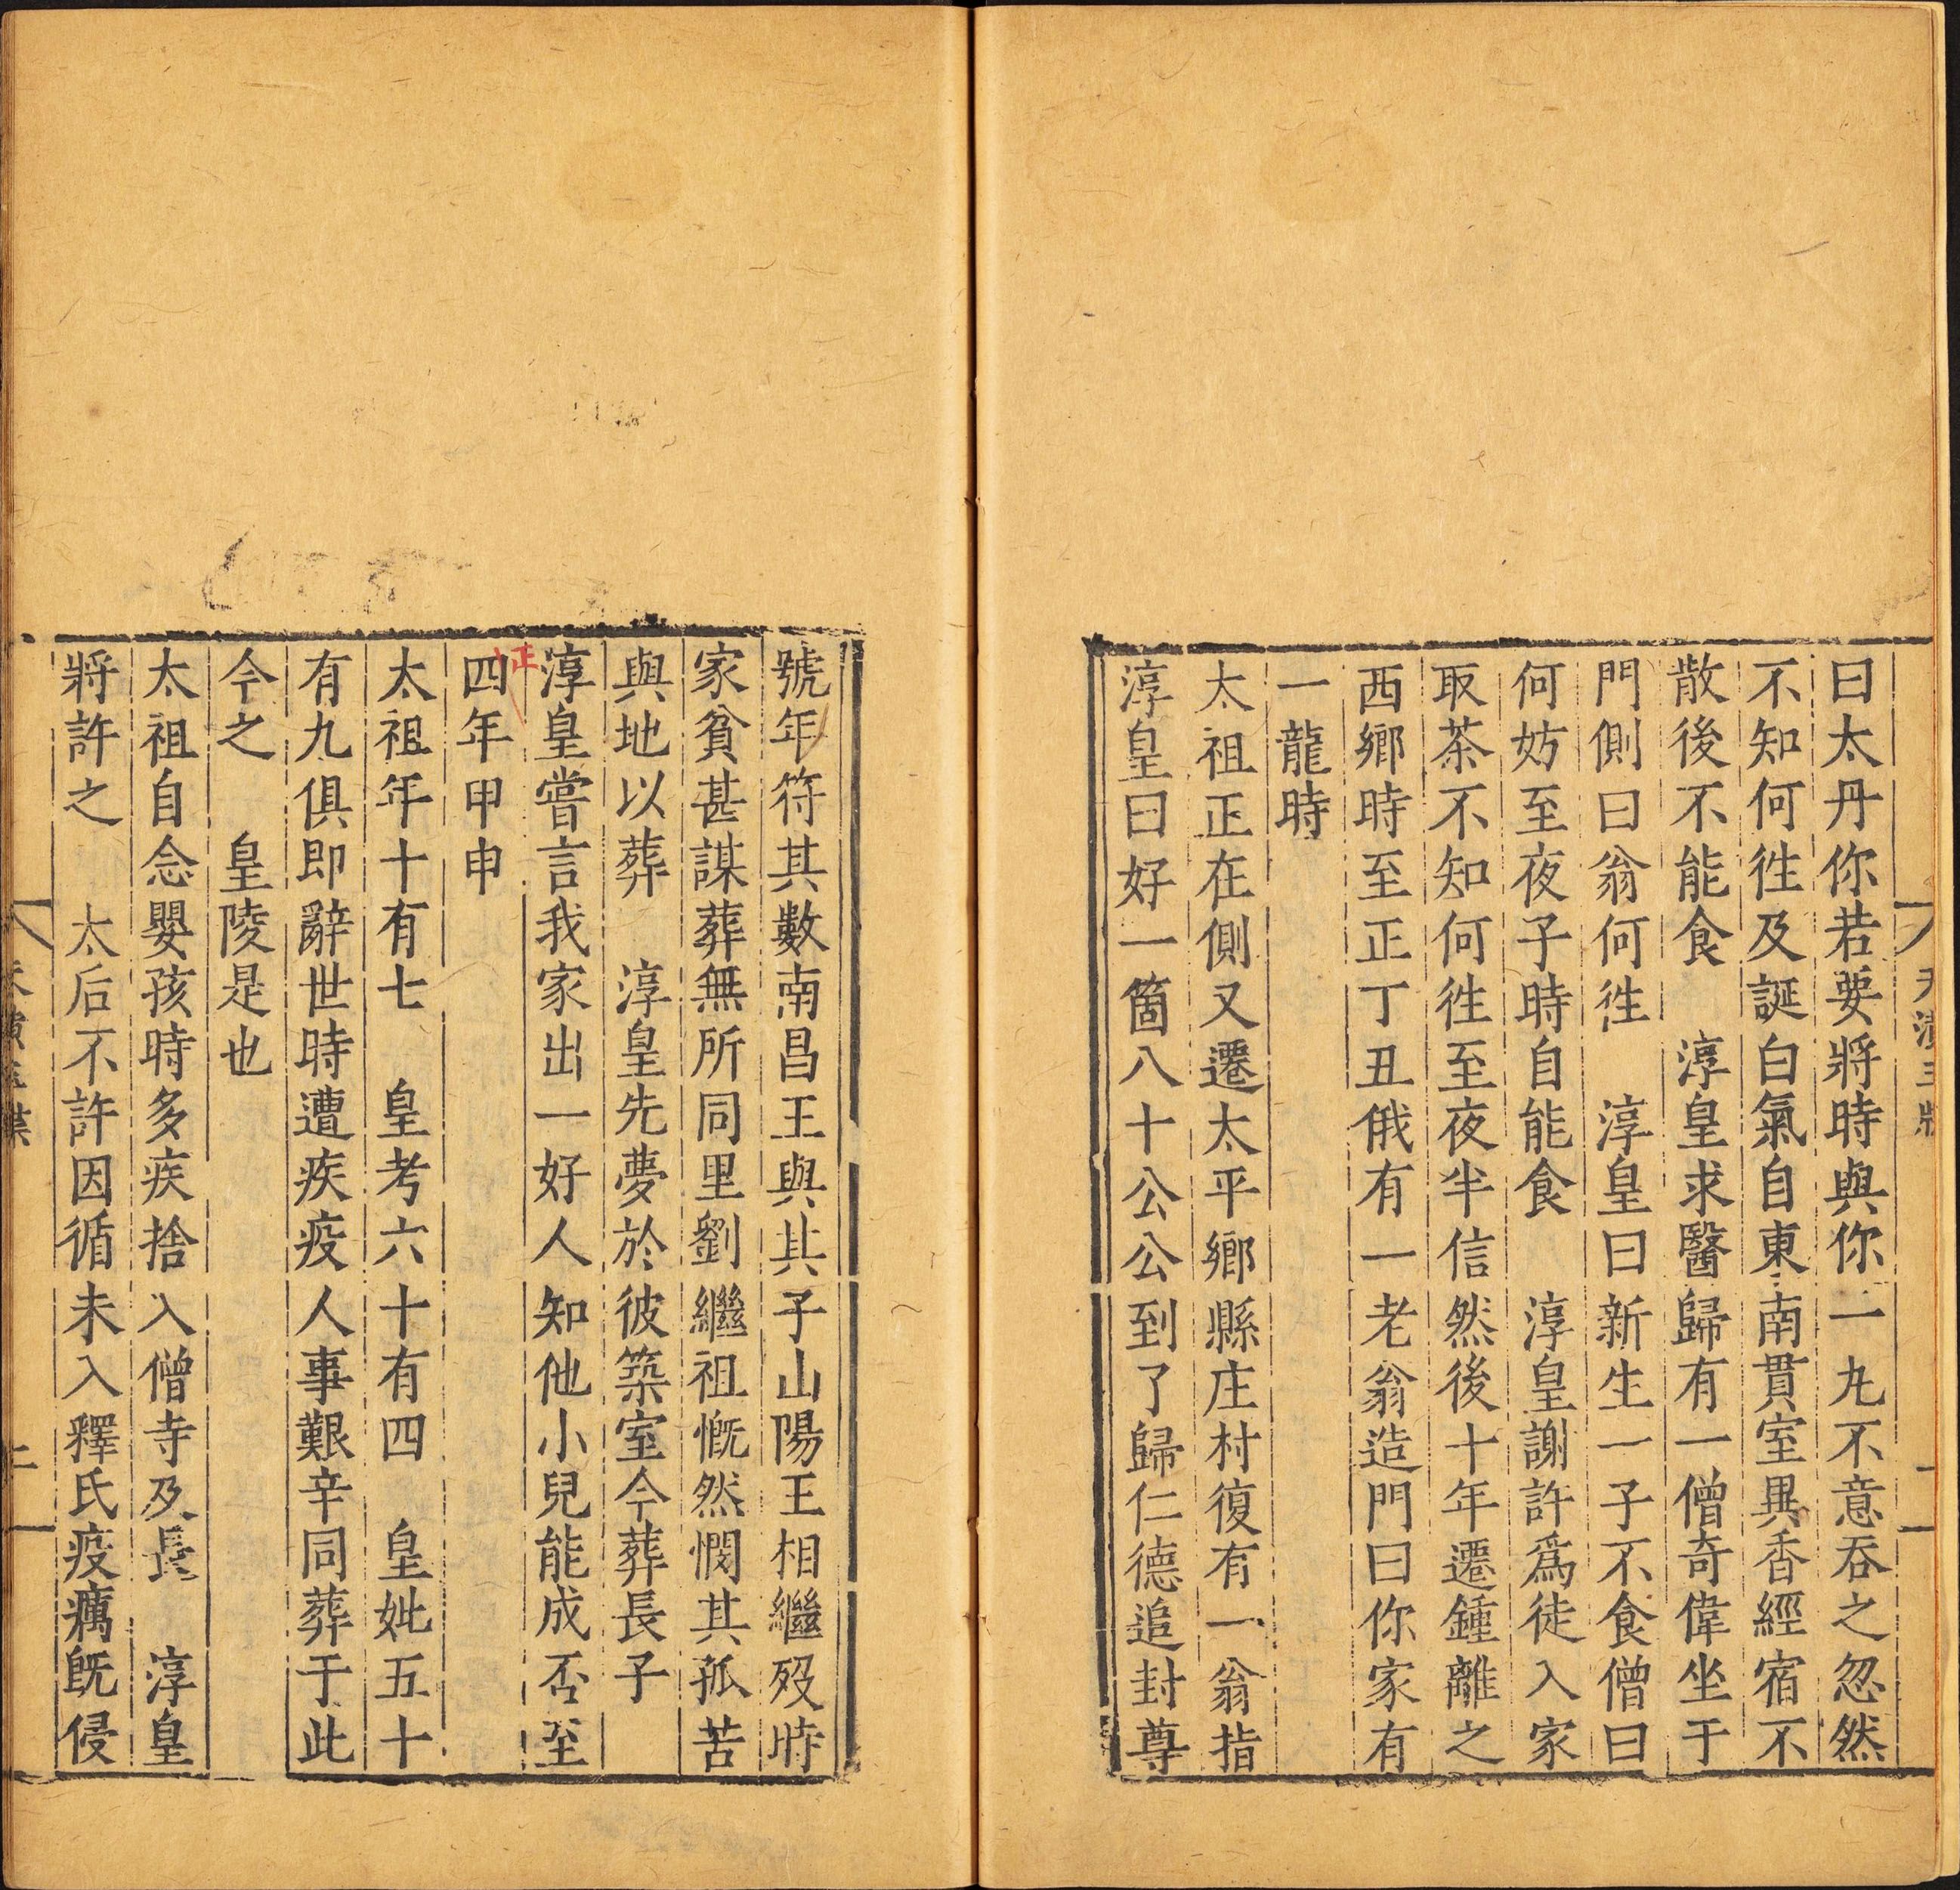 曰太丹你若要將時與你一九不意吞之忽然
不知何徃及誕白氣自東南貫室異香經宿不
散後不能食　淳皇求醫歸有一僧奇偉坐于
門側曰翁何徃　淳皇曰新生一子不食僧曰
何妨至夜子時自能食　淳皇謝許爲徒入家
取茶不知何徃至夜半信然後十年遷鍾離之
西鄉時至正丁丑俄有一老翁造門曰你家有
一龍時
太祖正在側又遷太平鄉縣庄村復有一翁指
淳皇曰好一箇八十公公到了歸仁德追封尊
號年符其數南昌王與其子山陽王相繼歿時
家貧甚謀葬無所同里劉繼祖慨然憫其孤苦
與地以葬　淳皇先夢於彼築室今葬長子
淳皇嘗言我家出一好人知他小兒能成否至
正
四年甲申
太祖年十有七　皇考六十有四　皇妣五十
有九俱即辭世時遭疾疫人事艱辛同葬于此
今之　皇陵是也
太祖自念嬰孩時多疾捨入僧寺及長　淳皇
將許之　太后不許因循未入釋氏疫癘既侵